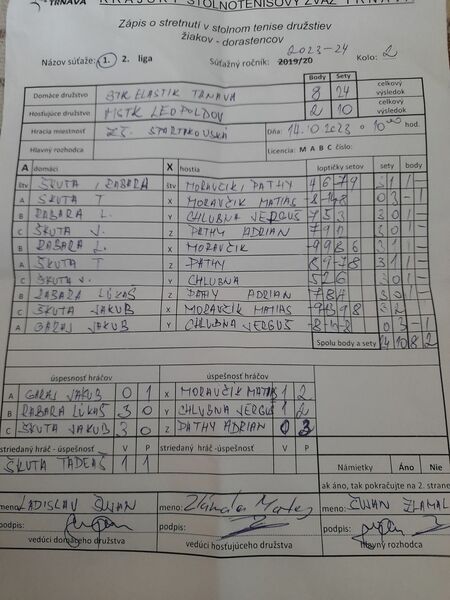 TRNAVA KRAJSKÝ STOLNOTENISOVÝ ZVÄZ TRNAVA
Zápis o stretnutí v stolnom tenise družstiev
žiakov - dorastencov
Názov súťaže: 1. 2. liga Súťažný ročník: 2019/20 2023-24 Kolo: 2
Body Sety
Domáce družstvo STK ELASTIK TRNAVA 8 24 celkový výsledok
Hosťujúce družstvo MSTK LEOPOLDOV 2 10 celkový výsledok
Hracia miestnosť ZŠ. SPARTAKOVSKÁ Dňa: 14.10 2023 o 10 00 hod.
Hlavný rozhodca Licencia: M A B C číslo:
A domáci X hostia loptičky setov sety body
štv ŠKUTA, RABARA štv MORAVČÍK, PATHY 4 6 -7 9 3 1 1 -
A ŠKUTA T X MORAVČIK MATIAS 0 3 - 1
B RABARA L. Y CHLUBNA VERGUŠ 7 5 3 3 0 1 -
C ŠKUTA J. Z PATHY ADRIAN 3 0 1 -
B RABARA L. X MORAVČIK -9 9 8 6 3 1 1 -
A ŠKUTA T Z PATHY 8 9 -7 8 3 1 1 -
C ŠKUTA J. Y CHLUBNA 5 2 6 3 0 1 -
B RABARA LÍKAŠ Z PATHY ADRIAN 7 8 4 3 0 1 -
C ŠKUTA JAKUB X MORAVČIK MATIAS 3 2
A GARAJ JAKUB Y CHLUBNA VERGUŠ 0 3 - 1
Spolu body a sety 24 10 8 2
úspesnosť hráčov úspešnosť hráčov
A GARAJ JAKUB 0 1 X MORAVČIK MATIAS 1 2
B RABARA LÍKAŠ 3 0 Y CHLUBNA VERGUŠ 1 2
C ŠKUTA JAKUB 3 0 Z PATHY ADRIAN 0 3
striedaný hráč - úspešnosť V P striedaný hráč -úspešnosť V P
ŠKUTA TADEÁŠ 1 1 Námietky Áno Nie
ak áno, tak pokračujte na 2. strane
meno: LADISLAV ČWAN meno: meno: ČWAN ZLAMAL
podpis: podpis: podpis:
vedúci domáceho družstva vedúci hosťujúceho družstva hlavný rozhodca